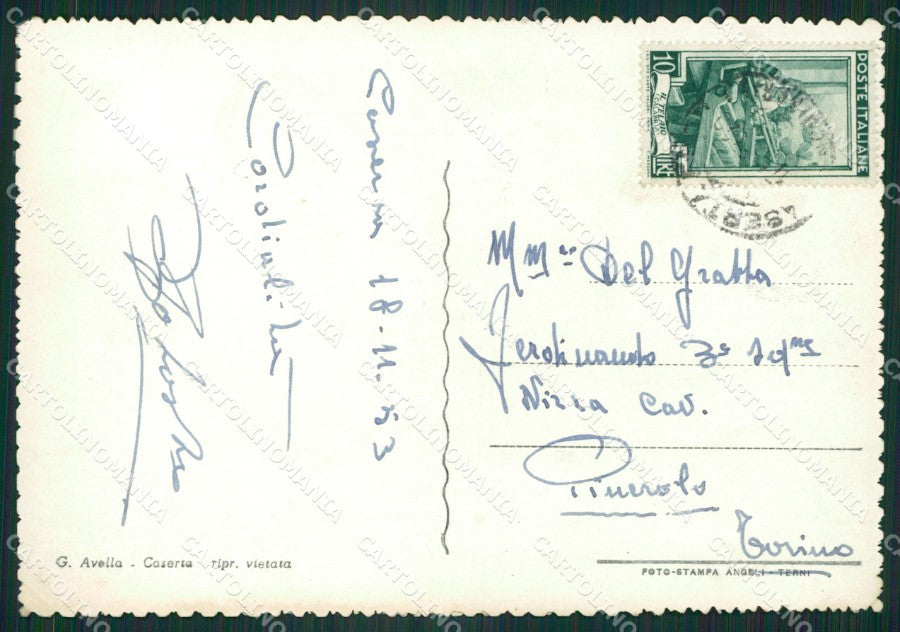 Caserta 18.11.53
Cordialità
10
LIRE
IL TELAIO
POSTE ITALIANE
CASERTA
M.mo Del Gratta
Ferdinando 3° Sqne
Nizza Cav.
Pinerolo
Torino
G. Avella - Caserta ripr. vietata
FOTO-STAMPA ANGELI - TERNI
CARTOLINOMANIA